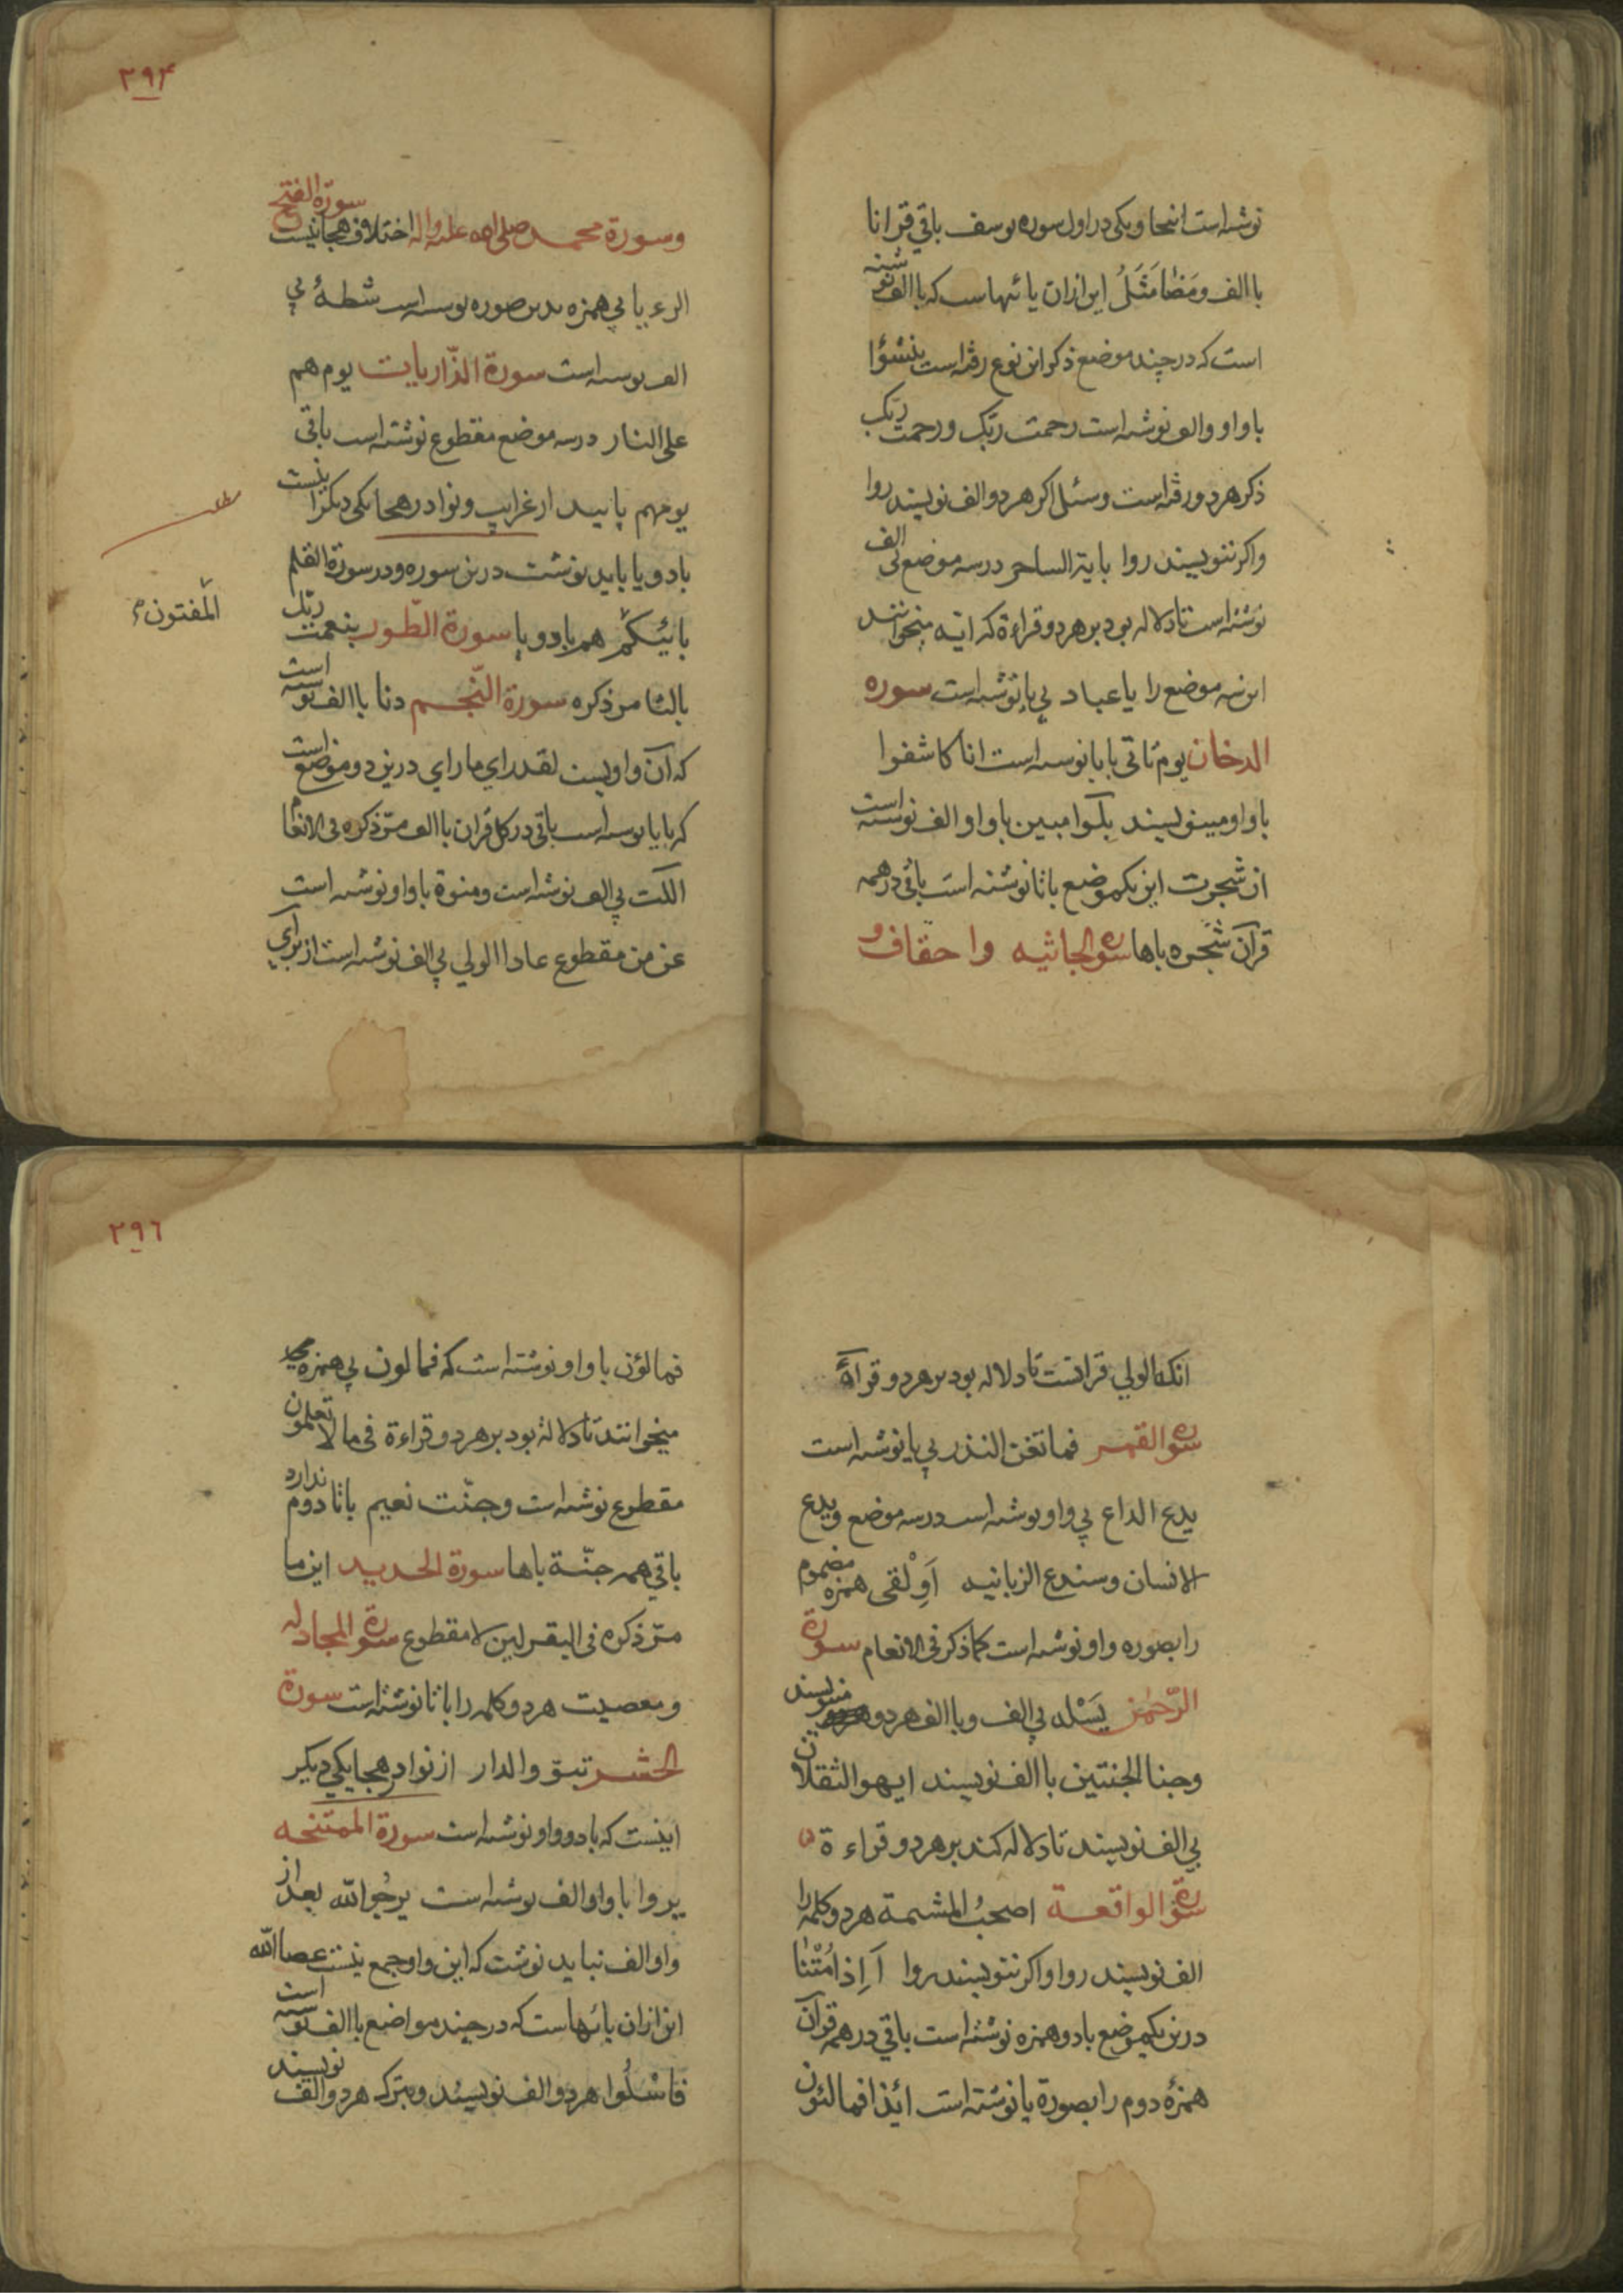 نوشته است اینجا و یکی در اول سوره یوسف باقی قرانا
با الف و مَضٰا مَثَلُ این ازان یائهاست که با الف نوشته
است که در چند موضع ذکر این نوع رفته است ینشؤا
با واو و الف نوشته است رحمت ربّک و رحمت ربّک
ذکر هر دو رفته است وسئل اکر هر دو الف نویسند روا
واکر ننویسند روا یایّه الساحر در سه موضع بی الف
نوشته است تا دلاله بود بر هر دو قراءة که ایّه میخوانند
این سه موضع را یا عباد بی یا نوشته است سوره
الدخان یوم تاتی با یا نوسته است انا کاشفوا
با واو مینویسند بلٰوا مبین با واو الف نوسته است
ان شجرت این یکموضع با تا نوشته است باقی در همه
قرآن شجره با ها سورة الجاثیه و احقاف و
٢٩۴
وسورة محمد صلی الله علیه واله سورة الفتح اختلاف هجا نیست
الرءیا بی همزه بدین صوره نوسته است شطهٔ بی
الف نوسته است سورة الذّاریات یوم هم
علی النار در سه موضع مقطوع نوشته است باقی
یومهم بایید از غرایب و نوادر هجا یکی دیکر اینست
با دو یا باید نوشت درین سوره و در سورة القلم
بائیّکم هم با دو یا سورة الطّور بنعمت ربّک
بالتا مر ذکره سورة النّجم دنا با الف نوسته است
که آن واویست لقد رای ما رای درین دو موضع است
که با یا نوسته است باقی در کل قران با الف مرّ ذکره فی الانعام
اللت بی الف نوشته است ومنوة با واو نوشته است
عن من مقطوع عادا الولی بی الف نوشته است از برای
المفتون
انک الولی قرائتست تا دلاله بود بر هر دو قرآءة
سورة القمر فما تغن النذر بی یا نوشته است
یدع الداع بی واو نوشته است در سه موضع ویدع
الانسان وسندع الزبانیه اَوِلْقی همزه مضموم
را بصوره واو نوشته است کما ذکر فی الانعام سورة
الرّحمٰن یَسْله بی الف و با الف هر دو مینویسند
وجنا الجنتین با الف نویسند ایه الثقلان
بی الف نویسند تا دلاله کند بر هر دو قراءة
سورة الواقعة اصحبُ المشمة هر دو کلمه را
الف نویسند روا واکر ننویسند روا اَاِذا مُتْنٰا
درین یکموضع با دو همزه نوشته است باقی در همه قرآن
همزهٔ دوم را بصورة یا نوشته است ائذا فمالئون
٢٩٦
فمالؤن با واو نوشته است که فمالون بی همزه
میخوانند تا دلالة بود بر هر دو قراءة فی ما لا تعلمون
مقطوع نوشته است وجنّت نعیم با تا دوم ندارد
باقی همه جنّة با ها سورة الحدید این ما
مرّ ذکره فی البقر لین لا مقطوع سورة المجادله
ومعصیت هر دو کلمه را با تا نوشته است سورة
الحشر تبوّ والدار از نوادر هجا یکی دیکر
اینست که با دو واو نوشته است سورة الممتنحه
یروا با واو الف نوشته است یرجوا الله بعد از
واو الف نباید نوشت که این واو جمع نیست عصا الله
این ازان یائهاست که در چند مواضع با الف نوسته است
فاسْلُوا هر دو الف نویسند و بترک هر دو الف نویسند